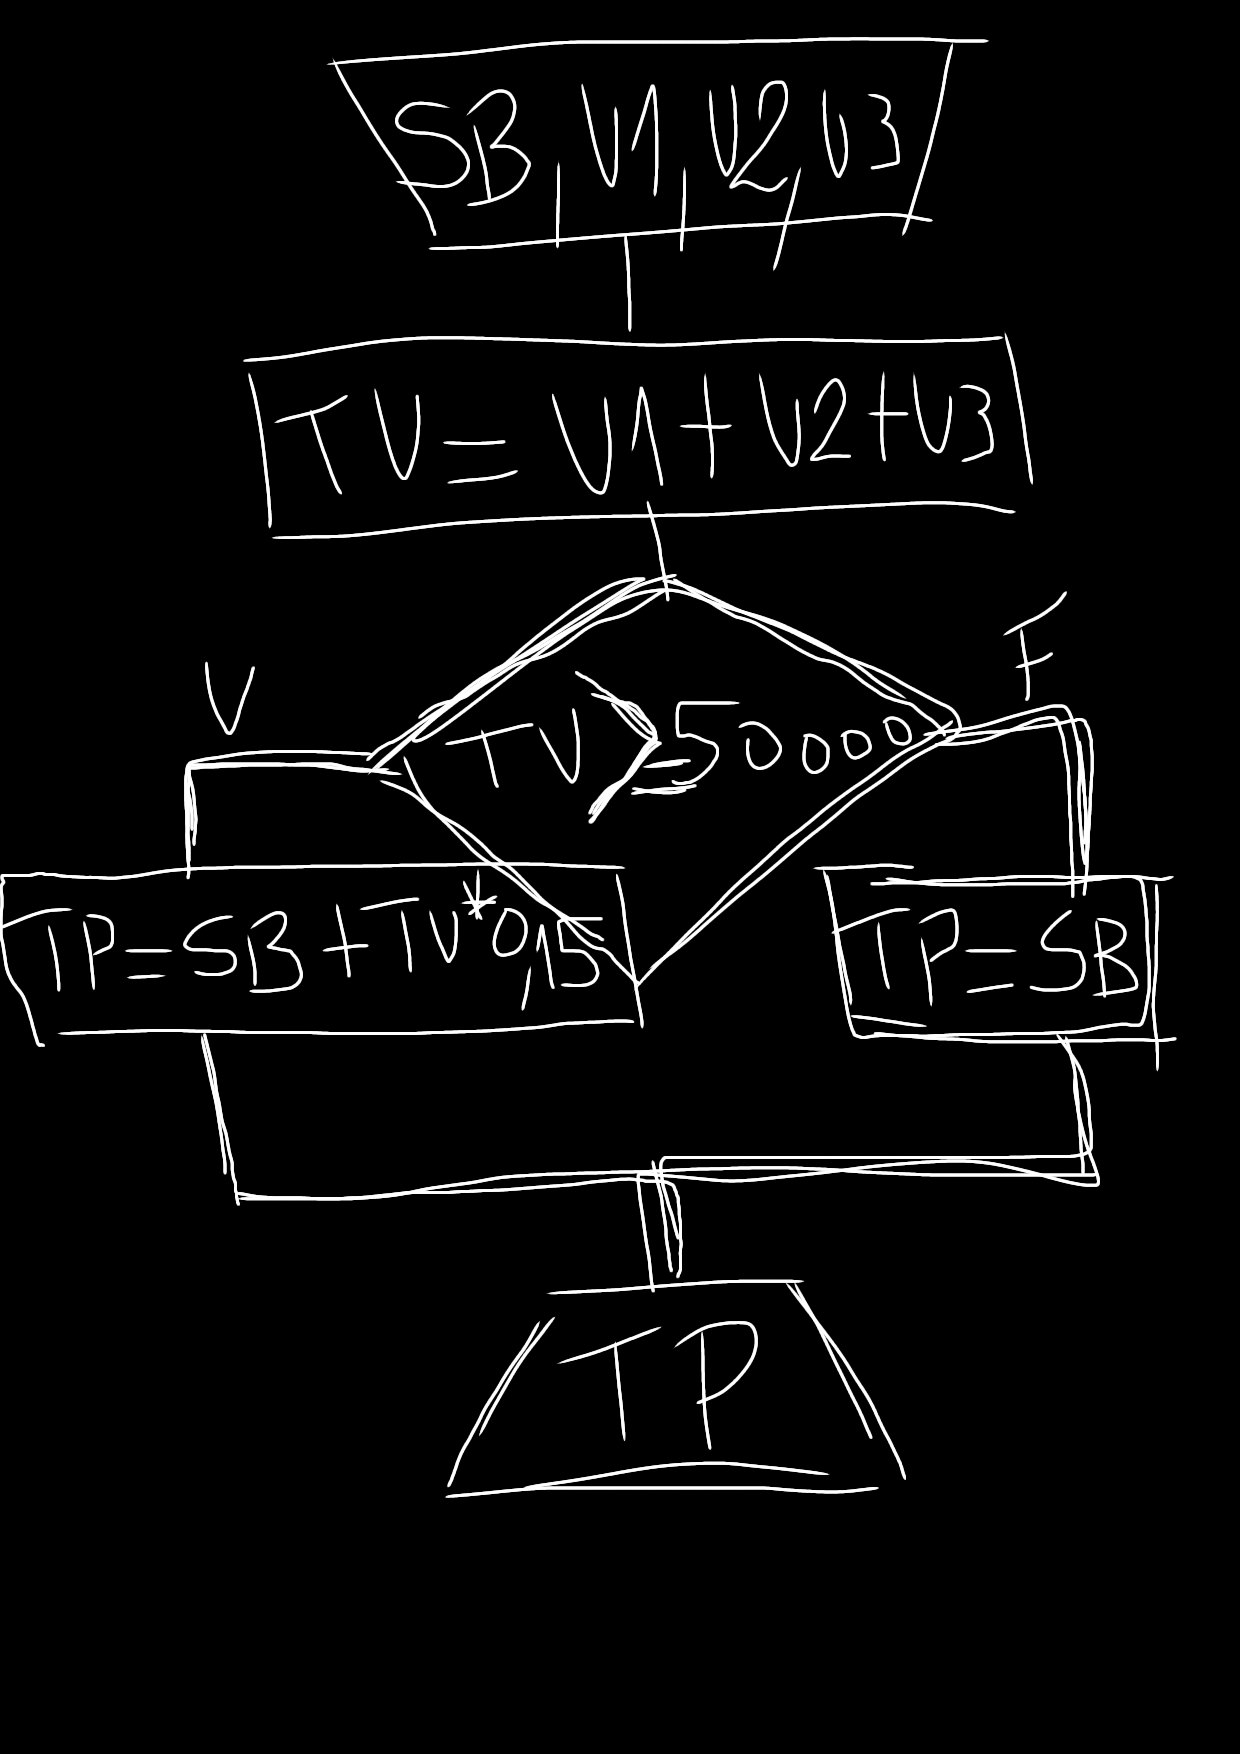 SB, V1, V2, V3
TV = V1 + V2 + V3
V
F
TV >= 50000
TP = SB + TV * 0,15
TP = SB
TP